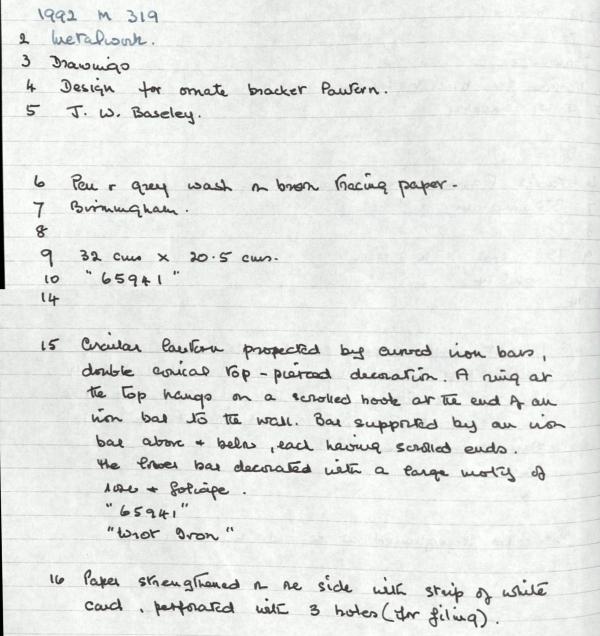 1992 M 319
2 Metalwork.
3 Drawings
4 Design for ornate bracket lantern.
5 J. W. Baseley.
6 Pen & grey wash on brown tracing paper.
7 Birmingham.
8
9 32 cms x 20.5 cms.
10 "65941"
14
15 Circular lantern protected by curved iron bars,
double conical top - pierced decoration. A ring at
the top hangs on a scrolled hook at the end of an
iron bar to the wall. Bar supported by an iron
bar above & below, each having scrolled ends.
The lower bar decorated with a large motif of
rose & foliage.
"65941"
"Wrot Iron"
16 Paper strengthened on one side with strip of white
card, perforated with 3 holes (for filing).